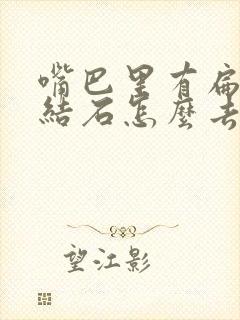 嘴巴里有扁
结石怎麼去
望江影